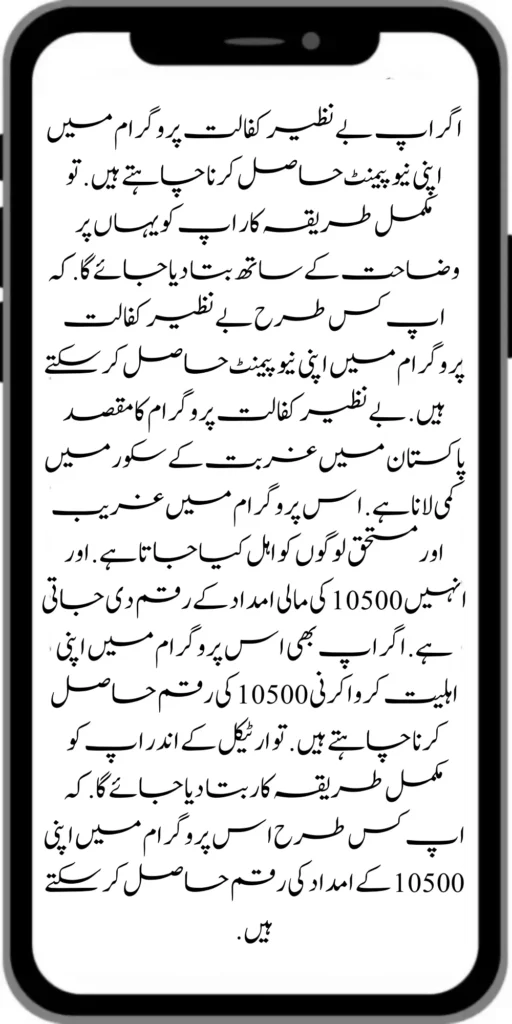 اگر اپ بے نظیر کفالت پروگرام میں
اپنی نیو پیمنٹ حاصل کرنا چاہتے ہیں. تو
مکمل طریقہ کار اپ کو یہاں پر
وضاحت کے ساتھ بتا دیا جائے گا. کہ
اپ کس طرح بے نظیر کفالت
پروگرام میں اپنی نیو پیمنٹ حاصل کر سکتے
ہیں. بے نظیر کفالت پروگرام کا مقصد
پاکستان میں غربت کے سکور میں
کمی لانا ہے. اس پروگرام میں غریب
اور مستحق لوگوں کو اہل کیا جاتا ہے. اور
انہیں 10500 کی مالی امداد کے رقم دی جاتی
ہے. اگر اپ بھی اس پروگرام میں اپنی
اہلیت کروا کرنی 10500 کی رقم حاصل
کرنا چاہتے ہیں. تو ارٹیکل کے اندر اپ کو
مکمل طریقہ کار بتا دیا جائے گا. کہ
اپ کس طرح اس پروگرام میں اپنی
10500 کے امداد کی رقم حاصل کر سکتے
ہیں.